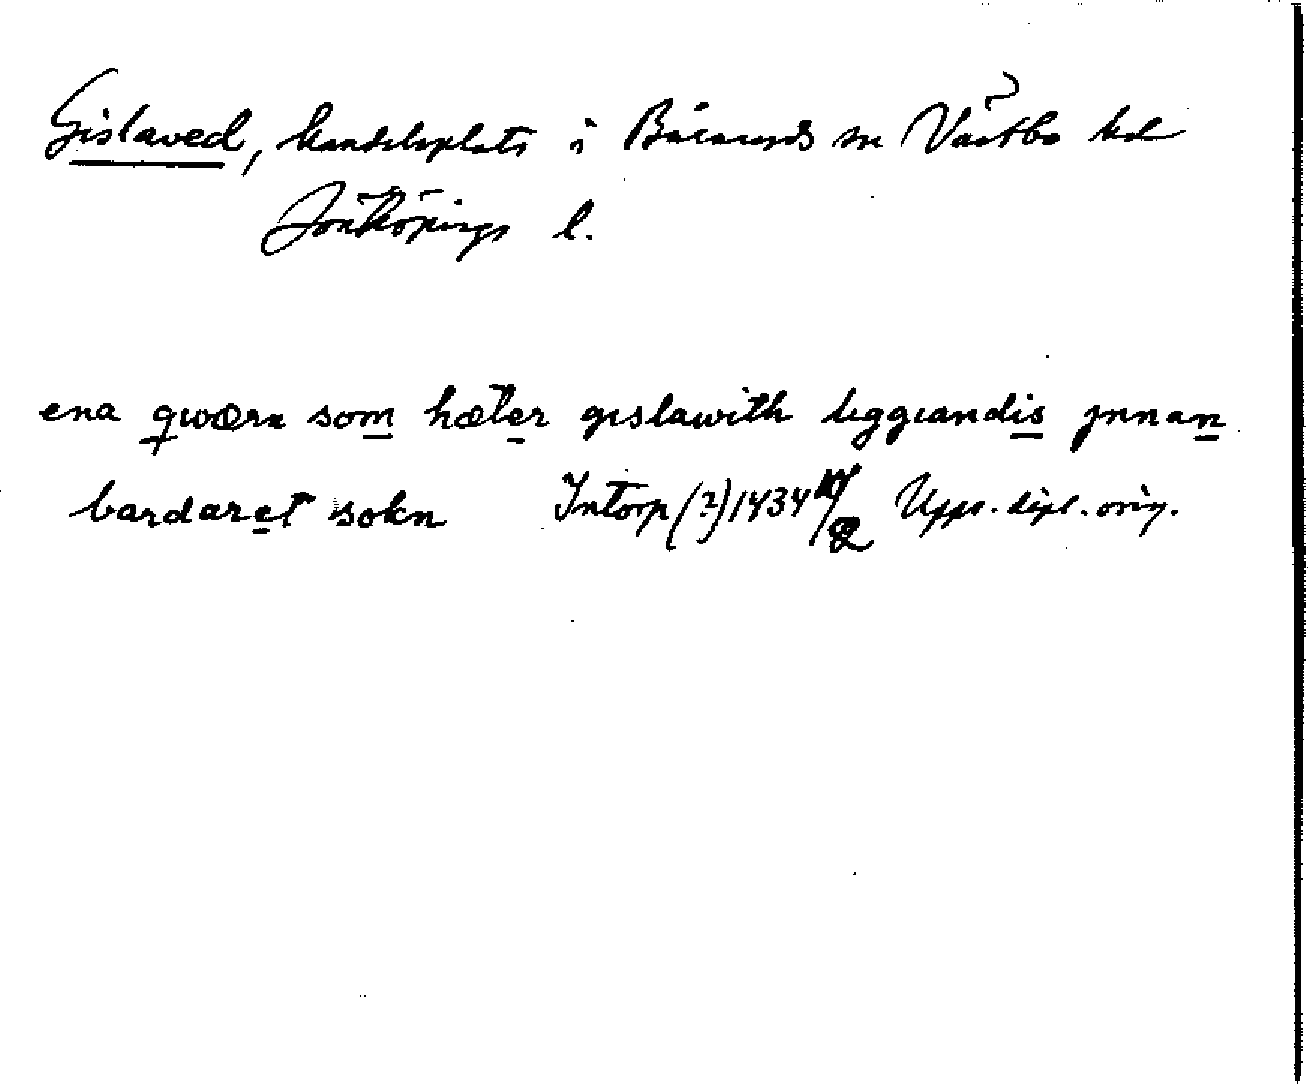 Gislaved, handelsplats i Båraryds sn Västbo hd
Jönköpings l.
ena qwærn som hæter gislawith liggiandis jnnan
bardaret sokn Intorp (?) 1434 Upps. dipl. orig.